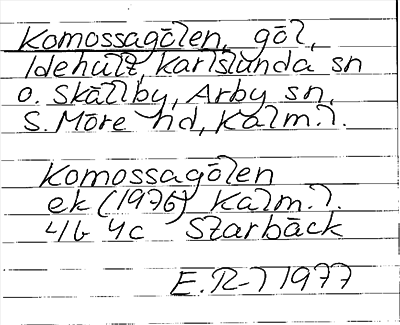 Komossagölen, göl,
Idehult, Karlslunda sn
o. Skällby, Arby sn,
S. Möre hd, Kalm. l.
Komossagölen
ek (1976) Kalm. l.
4G 4c Starbäck
E. R-7 1977